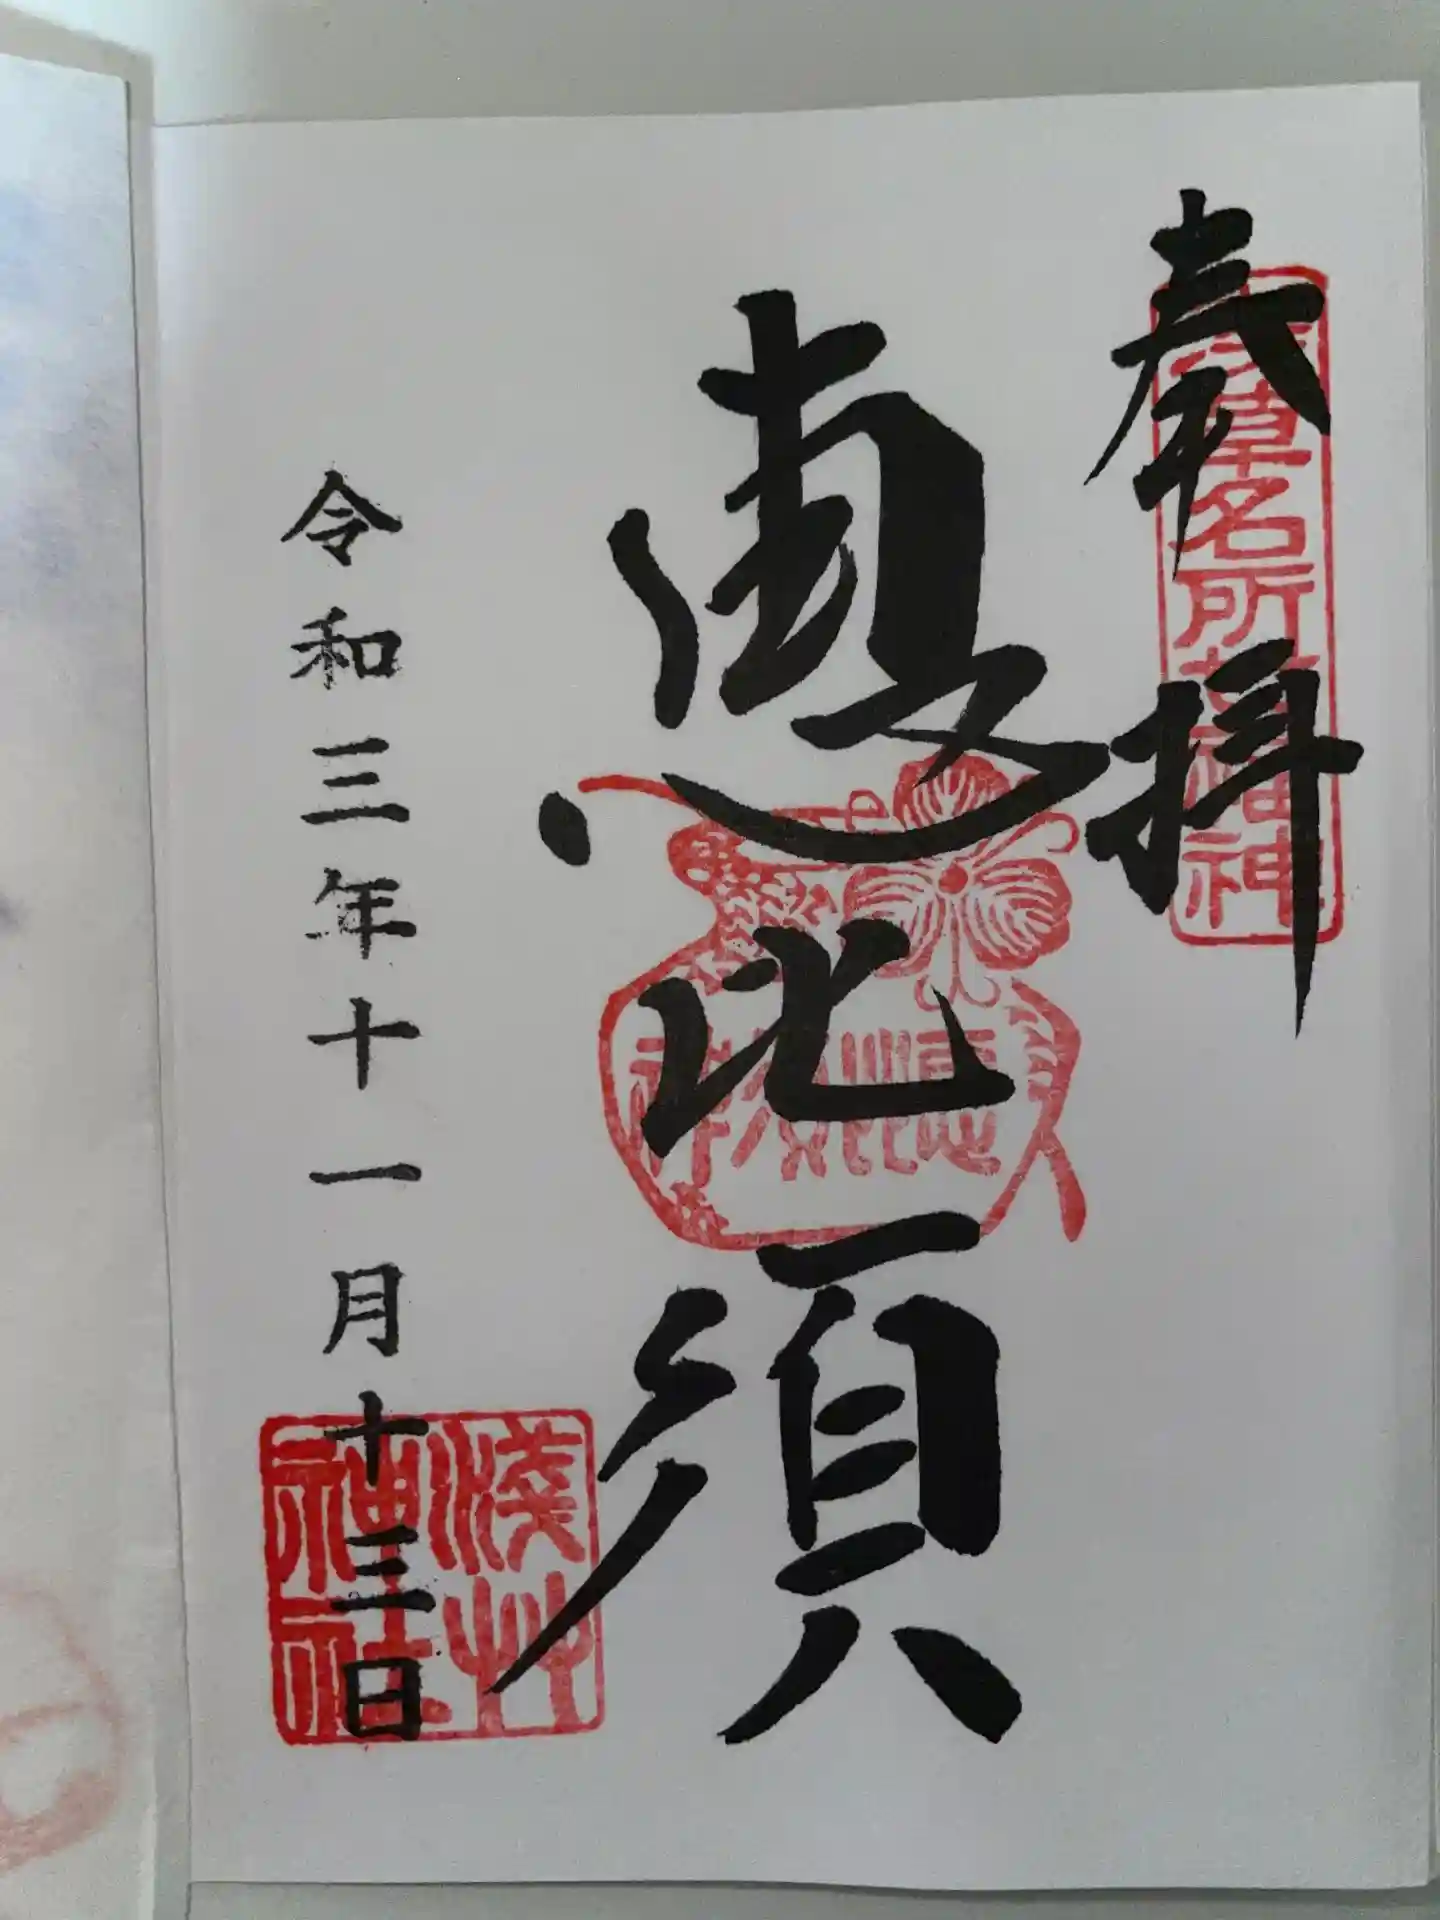 奉拝
浅草名所七福神
恵比須
恵比須神
令和三年十一月十三日
淺草
神社